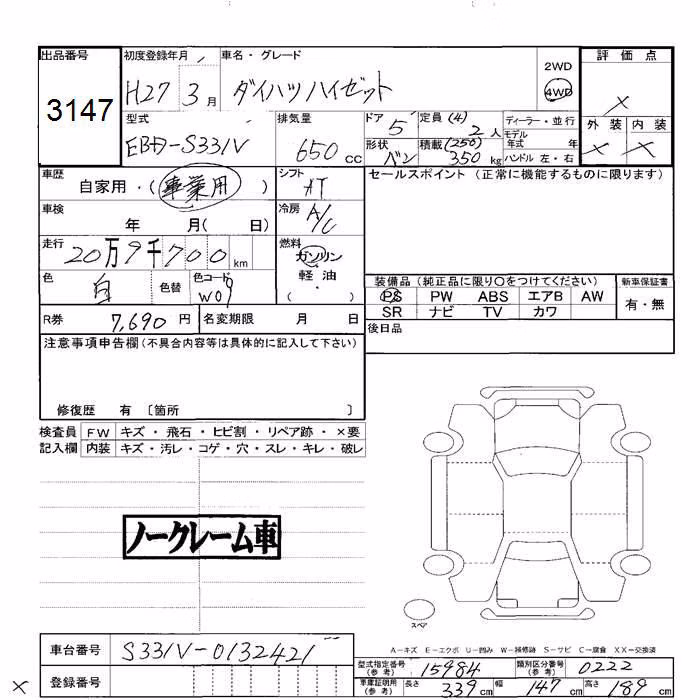 出品番号 初度登録年月 車名・グレード 評価点
3147 H27 3月 ダイハツハイゼット 2WD 4WD ×
型式 排気量 ドア 定員(4) ディーラー・並行 外装 内装
EBD-S331V 650cc 5 2人 モデル年式 年 × ×
形状 バン 積載(250) 350kg ハンドル 左・右
車歴 自家用・(事業用) シフト AT セールスポイント(正常に機能するものに限ります)
車検 年 月( 日) 冷房 A/C
走行 20万9千700km 燃料 ガソリン・軽油・( )
色 白 色替 色コード W09
装備品(純正品に限り○をつけてください) 新車保証書
PS PW ABS エアB AW 有・無
SR ナビ TV カワ
R券 7,690円 名変期限 月 日 後日品
注意事項申告欄(不具合内容等は具体的に記入して下さい)
修復歴 有 〔箇所 〕
検査員 FW キズ・飛石・ヒビ割・リペア跡・×要
記入欄 内装 キズ・汚レ・コゲ・穴・スレ・キレ・破レ
ノークレーム車
スペア
A－キズ E－エクボ U－凹み W－補修跡 S－サビ C－腐食 XX－交換済
車台番号 S331V-0132421
型式指定番号(参考) 15984 類別区分番号(参考) 0222
登録番号
車庫証明用(参考) 長さ 339cm 幅 147cm 高さ 189cm
×